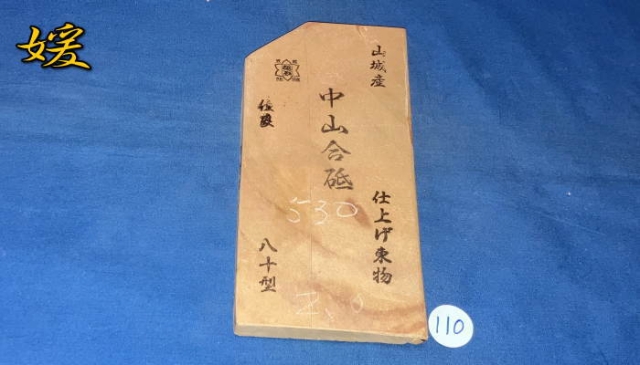 媛
山城産
中山合砥
仕上げ東物
八十型
530
2.0
110